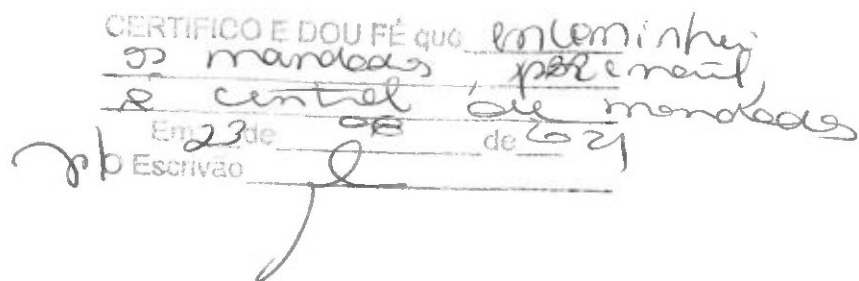 CERTIFICO E DOU FÉ que encaminhei
os mandados, por email,
à central de mandados
Em 23 de 08 de 2021
p/ O Escrivão